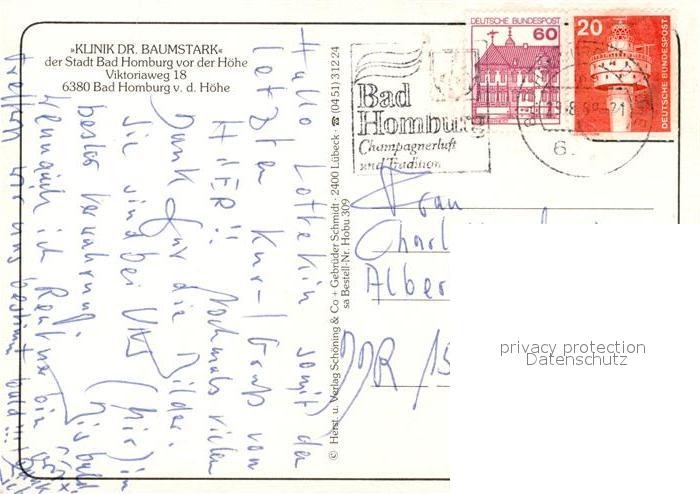 »KLINIK DR. BAUMSTARK«
der Stadt Bad Homburg vor der Höhe
Viktoriaweg 18
6380 Bad Homburg v. d. Höhe
DEUTSCHE BUNDESPOST
60
20
DEUTSCHE BUNDESPOST
Bad
Homburg
Champagnerluft
und Tradition
6.
Frau
Charl
Alber
DDR 15
privacy protection
Datenschutz
© Herst. u. Verlag Schöning & Co + Gebrüder Schmidt · 2400 Lübeck · ☎ (04 51) 3 12 24
sa Bestell-Nr. Hobu 309
Hallo somit der
letzten Kur-Gruß von
HIER!! Nochmals vielen
Dank für die Bilder.
Sie sind bei UNS (hier) in
bester Verwahrung. Bis bald
wenn ich Rentner bin
treffen wir uns bestimmt bald!!!